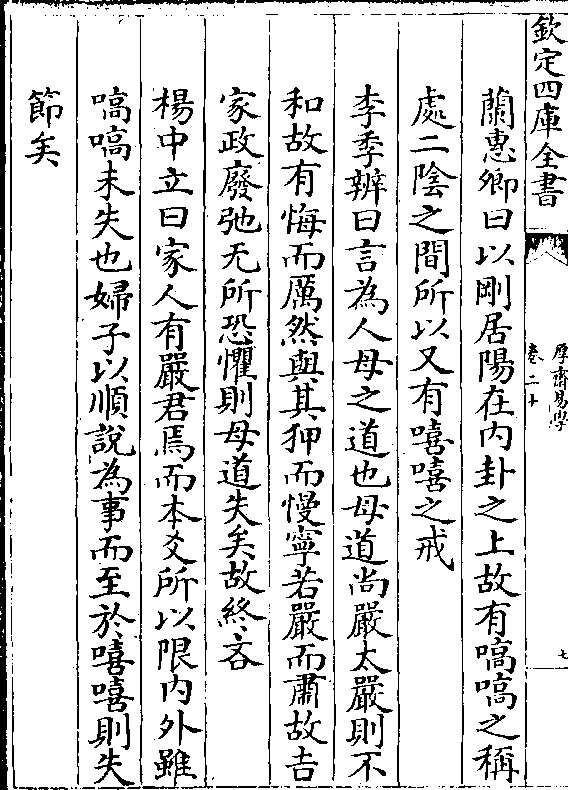 欽定四庫全書
厚齋易學
卷二十
七
蘭惠卿曰以剛居陽在内卦之上故有嗃嗃之稱
處二陰之間所以又有嘻嘻之戒
李季辨曰言為人母之道也母道尚嚴太嚴則不
和故有悔而厲然與其狎而慢寧若嚴而肅故吉
家政廢弛无所恐懼則母道失矣故終吝
楊中立曰家人有嚴君焉而本爻所以限内外雖
嗃嗃未失也婦子以順說為事而至於嘻嘻則失
節矣